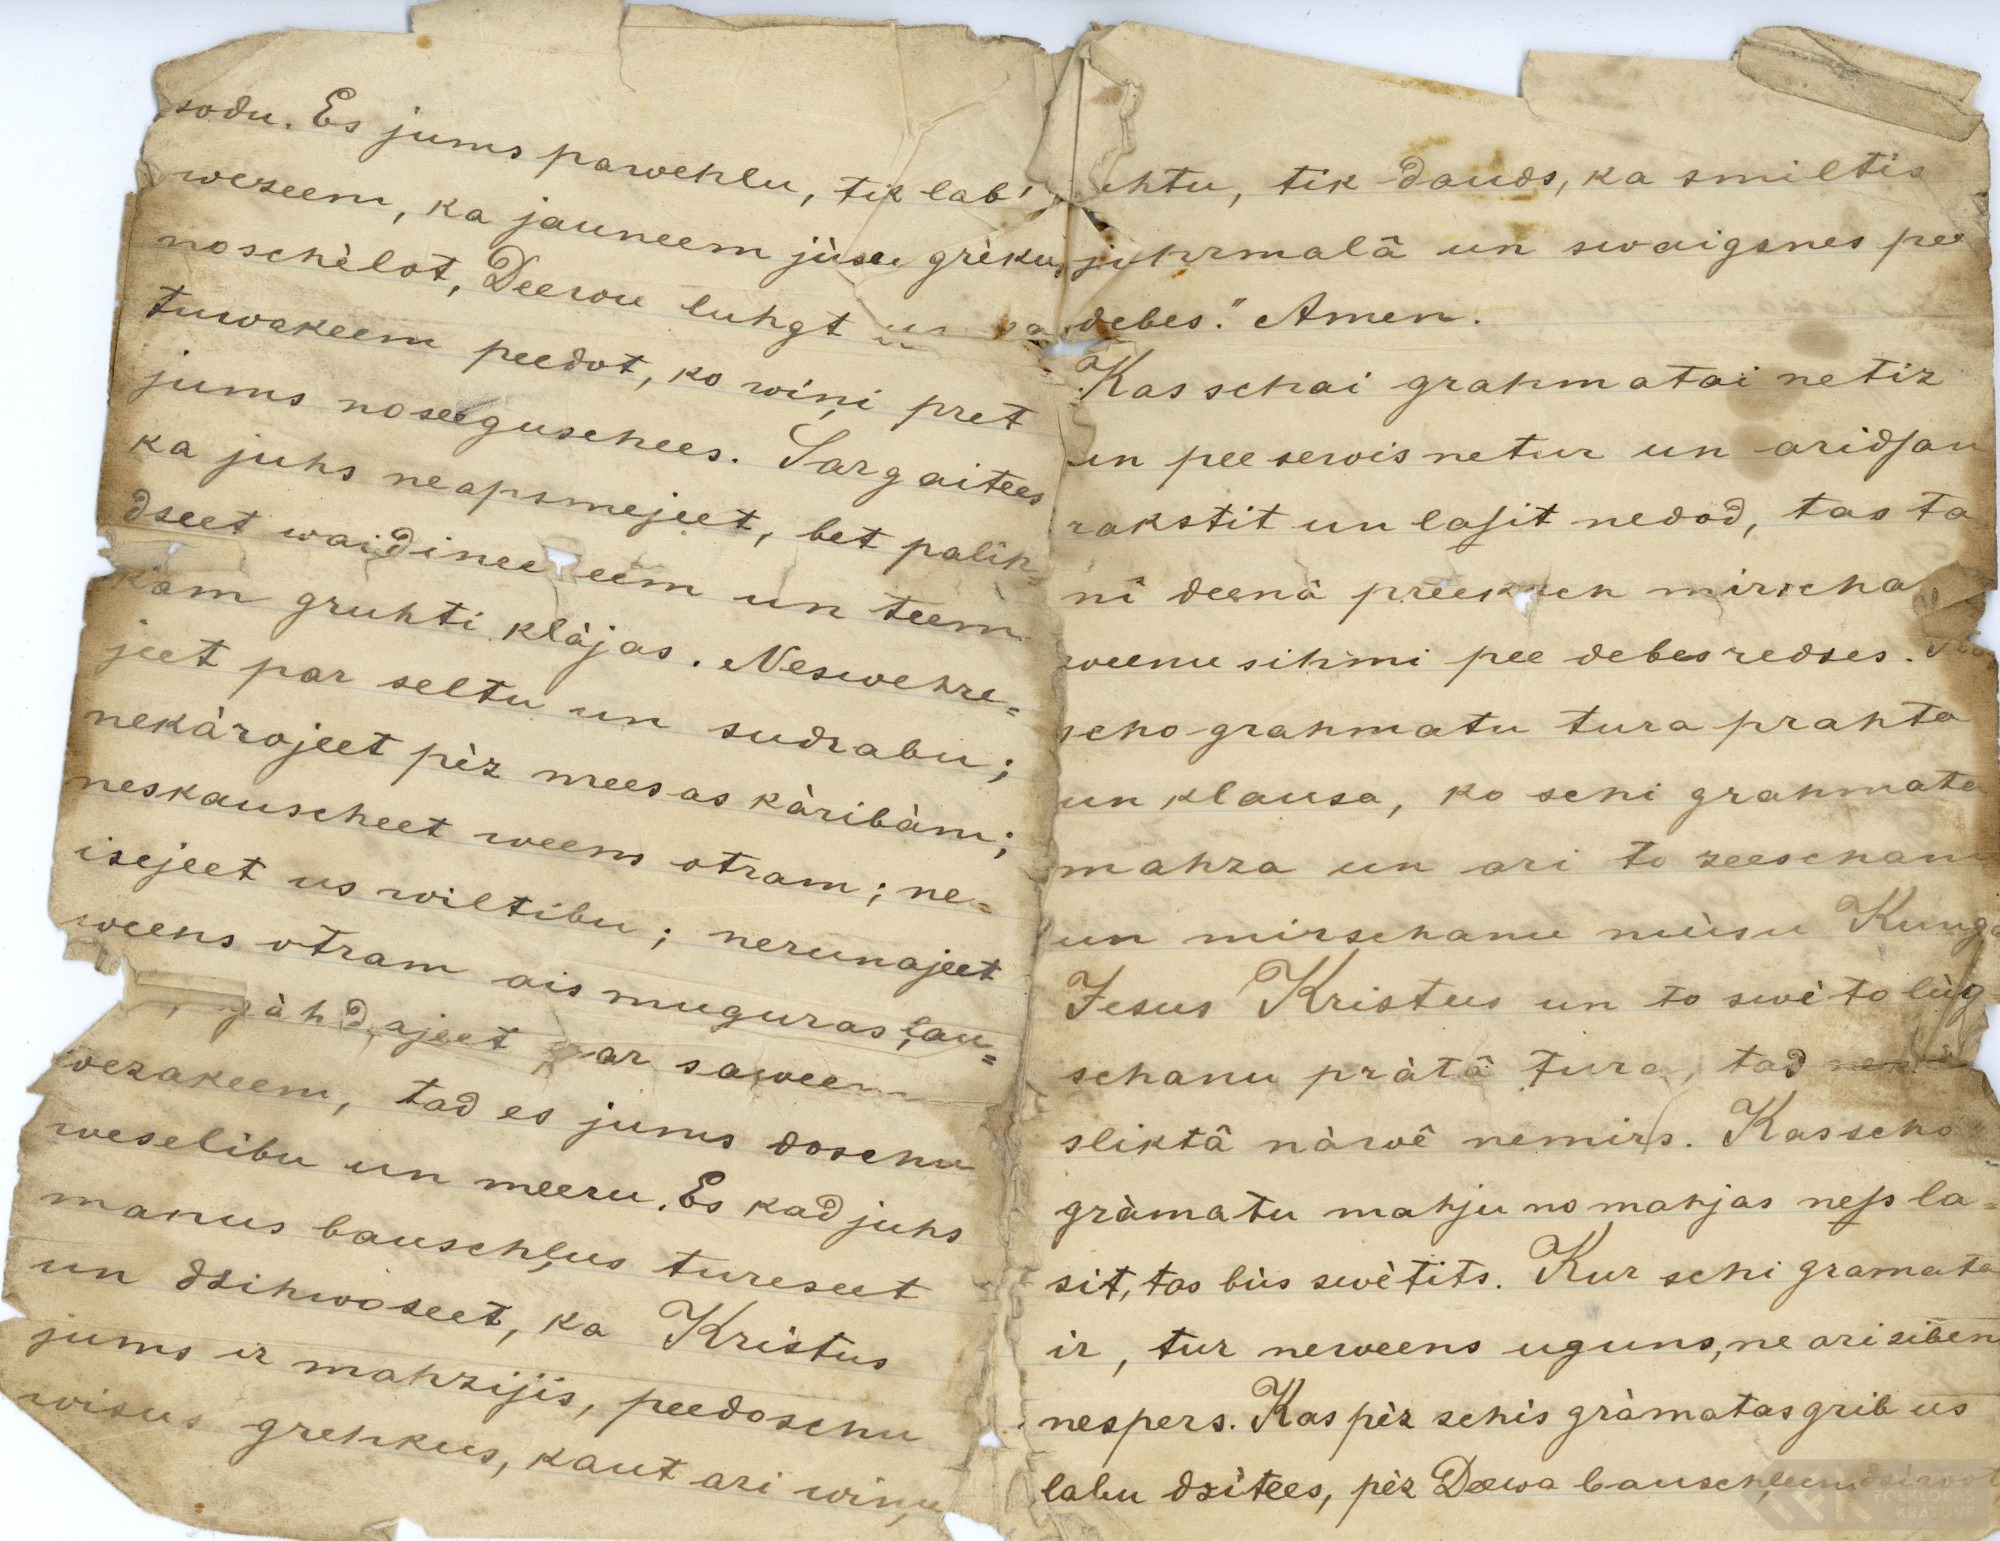 sodu. Es jums pawehlu, tik lab'
wezeem, ka jauneem jùsu grèkus
noschèlot, Deewu luhgt un sa
tuwakeem peedot, ko wiņi pret
jums noseeguschees. Sargaitees
ka juhs neapsmejeet, bet palih-
dseet waidineekeem un teem
kam gruhti klàjas. Neswehre-
jeet par seltu un sudrabu;
nekàrojeet pèz meesas kàribàm;
neskauscheet weens otram; ne-
isejeet us wiltibu; nerunajeet
weens otram ais muguras ļau-
gàhdajeet par saweem
wezakeem, tad es jums doschu
weselibu un meeru. Es kad juhs
manus bauschļus tureseet
un dsihwoseet, ka Kristus
jums ir mahzijis, peedoschu
wisus grehkus, kaut ari wiņu
ehtu, tik dauds, ka smiltis
juhrmalâ un swaigsnes pee
debes." Amen.
Kas schai grahmatai netiz
un pee sewis netur un aridſan
rakstit un laſit nedod, tas ta
nî deenâ preeksch mirscha
weenu sihmi pee debes redses. Kas
scho grahmatu tura prahta
un klausa, ko schi grahmata
mahza un ari to zeeschanu
un mirschanu mùsu Kunga
Jesus Kristus un to swèto lùg
schanu pràtâ tura, tad
sliktâ nàwê nemirs. Kas scho
gràmatu mahju no mahjas neſs la-
sit, tas bùs swètits. Kur schi gramata
ir, tur neweens uguns, ne ari siben
nespers. Kas pèz schis gràmatas grib us
labu dsìtees, pèz Deewa bauschļeem dsiwot